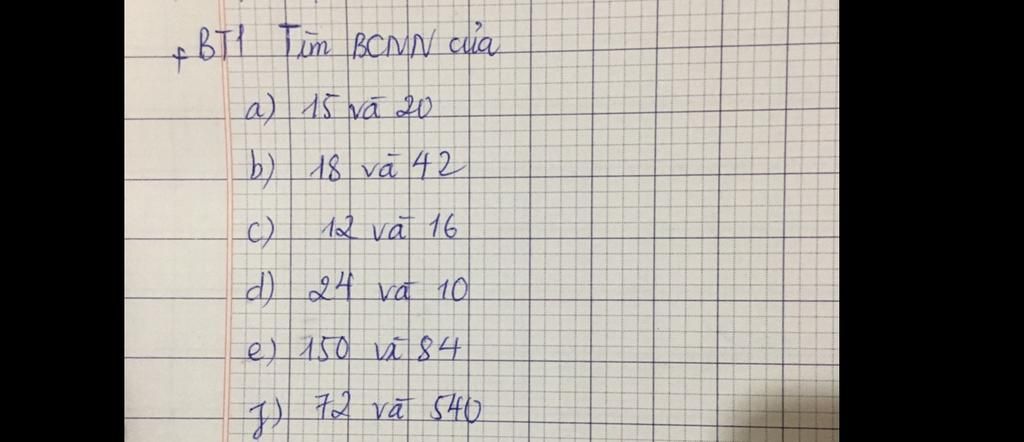 + BT1 Tìm BCNN của
a) 15 và 20
b) 18 và 42
c) 12 và 16
d) 24 và 10
e) 150 và 84
f) 72 và 540